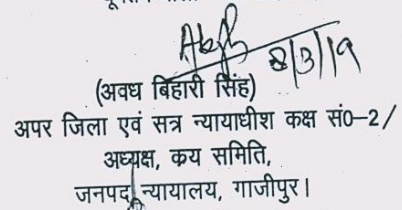 8/3/19
(अवध बिहारी सिंह)
अपर जिला एवं सत्र न्यायाधीश कक्ष सं0-2/
अध्यक्ष, कय समिति,
जनपद न्यायालय, गाजीपुर।